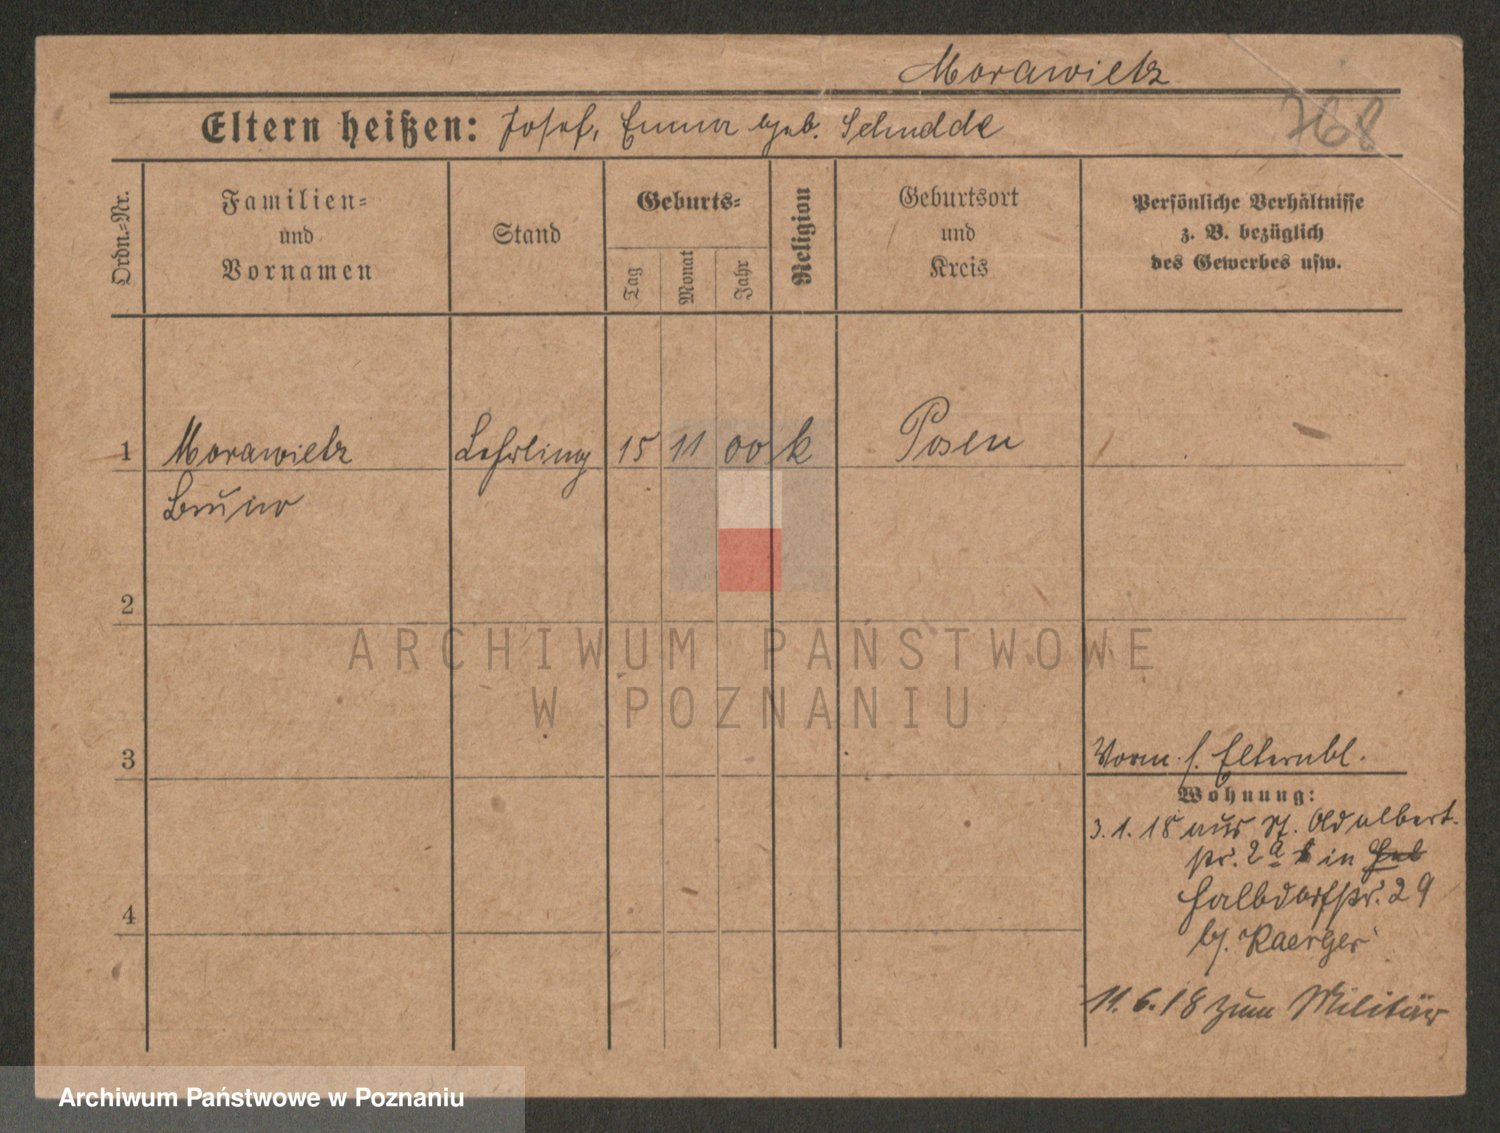 Morawietz
768
Eltern heißen: Josef, Emma geb. Schudde
Ordn.-Nr.
Familien-
und
Vornamen
Stand
Geburts-
Tag
Monat
Jahr
Religion
Geburtsort
und
Kreis
Persönliche Verhältnisse
z. B. bezüglich
des Gewerbes usw.
1 Morawietz Lehrling 15 11 00 k Posen
Bruno
2
ARCHIWUM PAŃSTWOWE
W POZNANIU
3
Vorm. s. Elternbl.
Wohnung:
3.1.18 aus St. Adalbert-
str. 2a in
Halbdorfstr. 29
bei Raerger
4
11.6.18 zum Militär
Archiwum Państwowe w Poznaniu